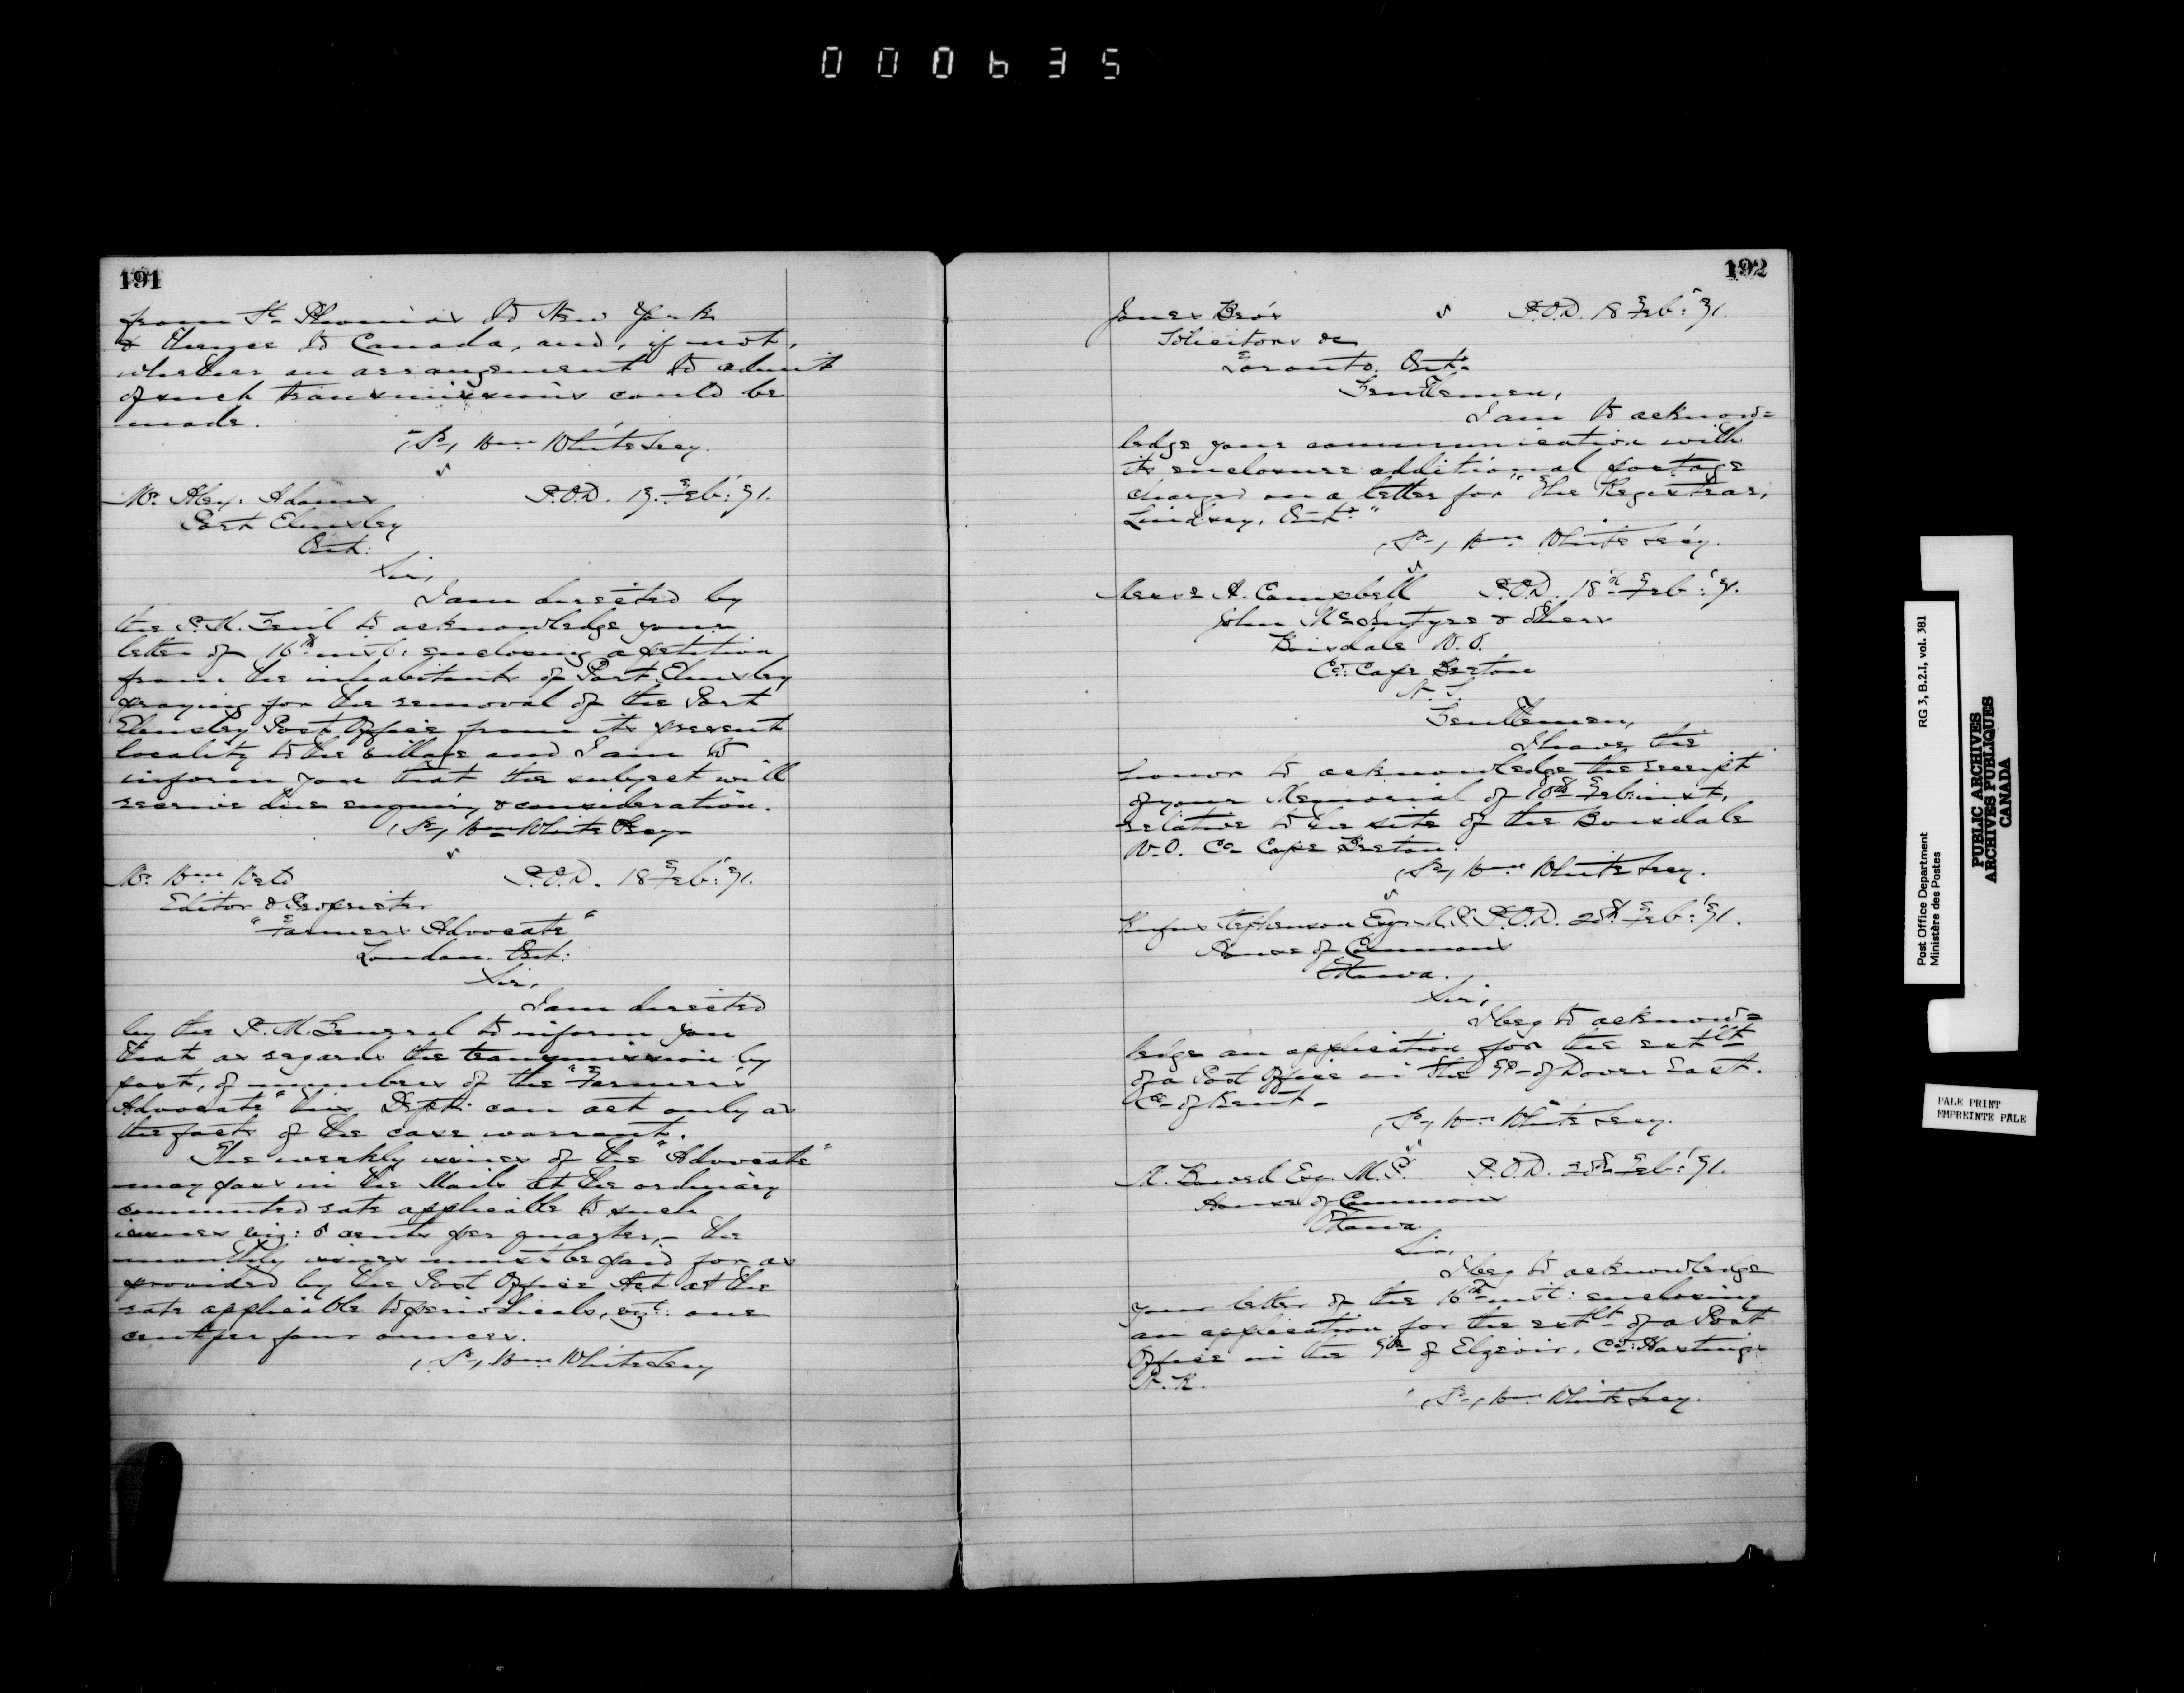 000635
191
from St. Thomas to New York
& thence to Canada, and, if not,
whether an arrangement to admit
of such transmissions could be
made.
(Sd) Wm White Secy.
Mr. Alex. Adams P.O.D. 17 Feb: '71.
Port Elmsley
Ont:
Sir,
I am directed by
the P.M. Genl to acknowledge your
letter of 16th inst: enclosing a petition
from the inhabitants of Port Elmsley
praying for the removal of the Port
Elmsley Post Office from its present
locality to the village and I am to
inform you that the subject will
receive due enquiry & consideration.
(Sd) Wm White Secy.
Mr. Wm Weld P.O.D. 18 Feb: '71.
Editor & Proprietor
"Farmers Advocate"
London. Ont:
Sir,
I am directed
by the P.M. General to inform you
that as regards the transmission by
post, of numbers of the "Farmer's
Advocate" this Dept: can act only as
the facts of the case warrant.
The weekly issues of the "Advocate"
may pass in the Mails at the ordinary
commuted rate applicable to such
issues viz: 5 cents per quarter,- the
monthly issues must be paid for as
provided by the Post Office Act at the
rate applicable to periodicals, vizt: one
cent per four ounces.
(Sd) Wm White Secy
192
Jones Bro's P.O.D. 18 Feb: '71.
Solicitors &c
Toronto. Ont.
Gentlemen,
I am to acknow=
ledge your communication with
its enclosure additional postage
charged on a letter for "The Registrar,
Lindsay, Ont."
(Sd) Wm White Secy.
Messrs A. Campbell P.O.D. 18th Feb: '71.
John McIntyre & others
Boisdale W.O.
Co. Cape Breton
N.S.
Gentlemen,
I have the
honor to acknowledge the receipt
of your Memorial of 10th Feb: inst,
relative to the site of the Boisdale
W.O. Co Cape Breton.
(Sd) Wm White Secy.
Rufus Stephenson Esq. M.P. P.O.D. 20th Feb: '71.
House of Commons
Ottawa.
Sir,
I beg to acknow=
ledge an application for the estlt
of a Post Office in the Tp of Dover East.
Co of Kent-
(Sd) Wm White Secy.
M. Bowell Esq. M.P. P.O.D. 20th Feb: '71.
House of Commons
Ottawa
Sir,
I beg to acknowledge
your letter of the 16th inst: enclosing
an application for the estlt of a Post
Office in the Tp of Elzevir, Co: Hastings
N.R.
(Sd) Wm White Secy.
Post Office Department RG 3, B.2.1, vol. 381
Ministère des Postes
PUBLIC ARCHIVES
ARCHIVES PUBLIQUES
CANADA
PALE PRINT
EMPREINTE PALE